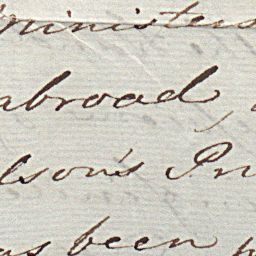 ministers
abroad,
lson's Pr
as been